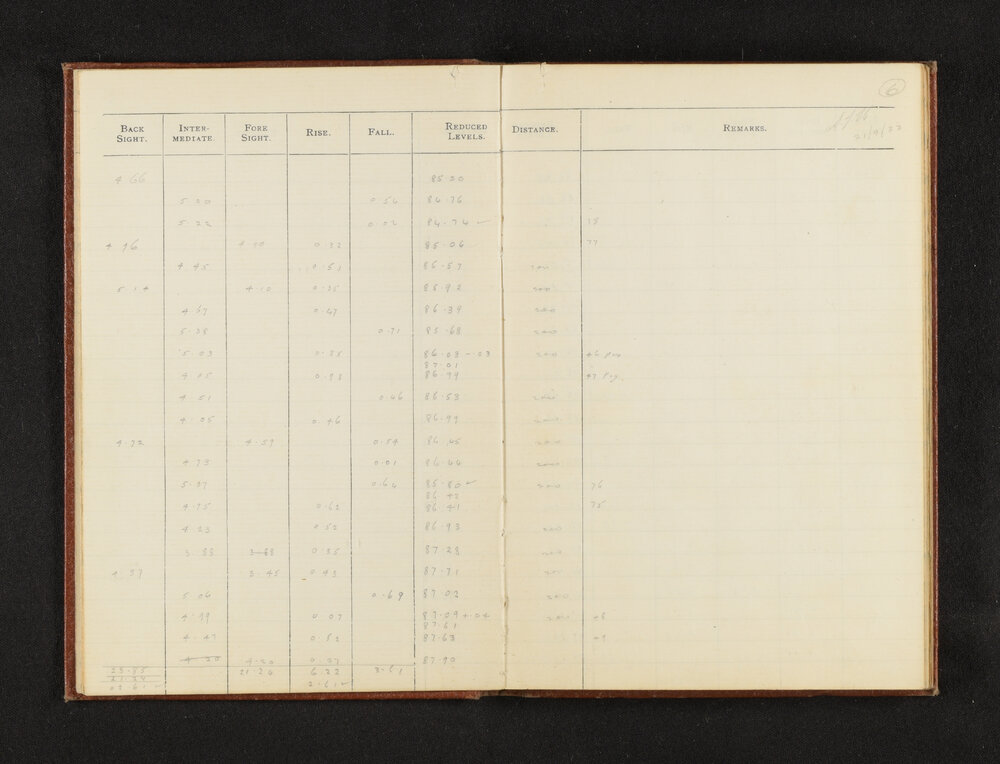 6
21/9/22
BACK SIGHT. INTER- MEDIATE FORE SIGHT. RISE. FALL. REDUCED LEVELS. DISTANCE. REMARKS.
4.66 85.20
5.20 0.54 84.76
5.22 0.02 84.74 ✓ 18
4.96 4.90 0.32 85.06 77
4.45 0.51 86.57 200
5.14 4.10 0.35 85.92 200
4.67 0.47 86.39 200
5.38 0.71 85.68 200
5.03 0.35 86.03 - 03 200 46 Peg
87.01
4.05 0.98 86.99 47 Peg.
4.51 0.46 86.53 200
4.05 0.46 86.99 200
4.72 4.59 0.54 86.45 200
4.73 0.01 86.44 200
5.37 0.64 85.80 ✓ 200 76
86.42
4.75 0.62 86.41 75
4.23 0.52 86.93 200
3.88 3.88 0.35 87.28 200
4.37 3.45 0.43 87.71 200
5.06 0.69 87.02 200
4.99 0.07 87.09 + 04 200 48
87.61
4.47 0.52 87.63 49
4.20 4.20 0.27 87.90
23.85 21.24 6.22 3.61
21.24 2.61 ✓
02.61 ✓